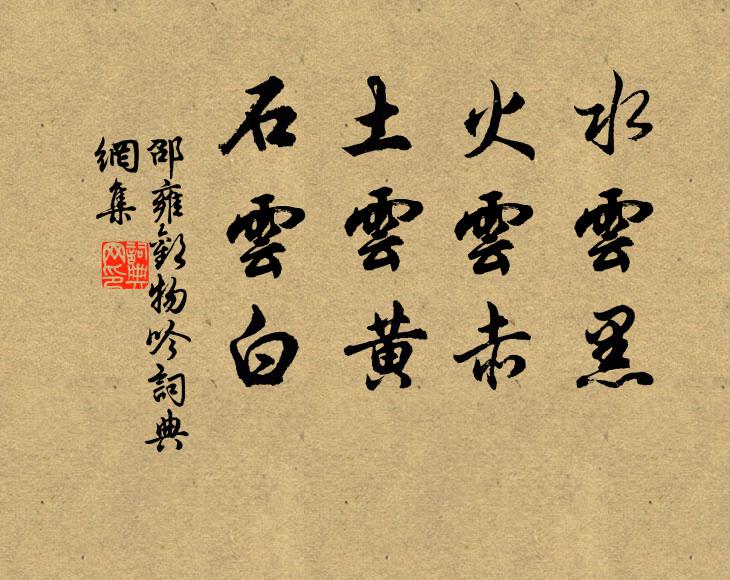 水雲黑
火雲赤
土雲黃
石雲白
邵雍觀物吟詞典
網集
詞典
网印